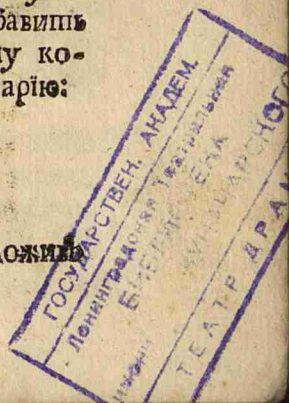 бавить
му ко-
арїю:
ложить
ГОСУДАРСТВЕН. АКАДЕМ.
Ленинградская Театральная
БИБЛИОТЕКА
ЛУНАЧАРСКОГО
ТЕАТР ДРАМ